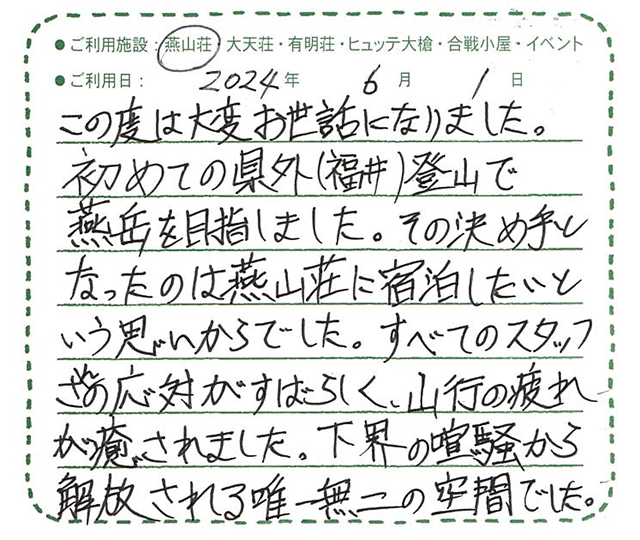 ●ご利用施設：燕山荘・大天荘・有明荘・ヒュッテ大槍・合戦小屋・イベント
●ご利用日： 2024年 6月 1日
この度は大変お世話になりました。
初めての県外(福井)登山で
燕岳を目指しました。その決め手と
なったのは燕山荘に宿泊したいと
いう思いからでした。すべてのスタッフ
さんの応対がすばらしく、山行の疲れ
が癒されました。下界の喧騒から
解放される唯一無二の空間でした。